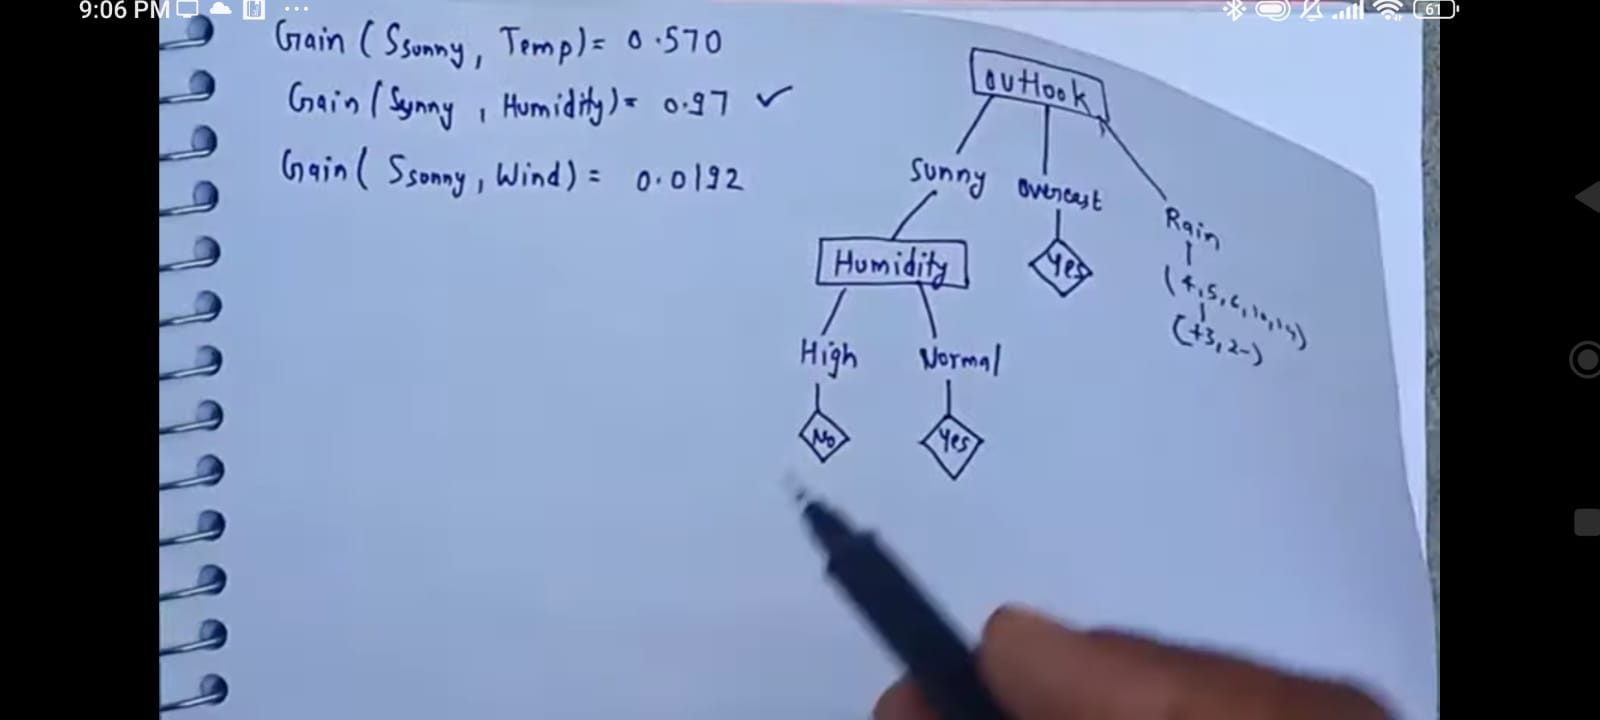 9:06 PM
61
Gain (Ssunny, Temp) = 0.570
Gain (Sunny, Humidity) = 0.97 ✓
Gain (Ssonny, Wind) = 0.0192
outlook
Sunny
Overcast
Rain
Humidity
Yes
(4,5,6,10,14)
(+3,2-)
High
Normal
No
Yes